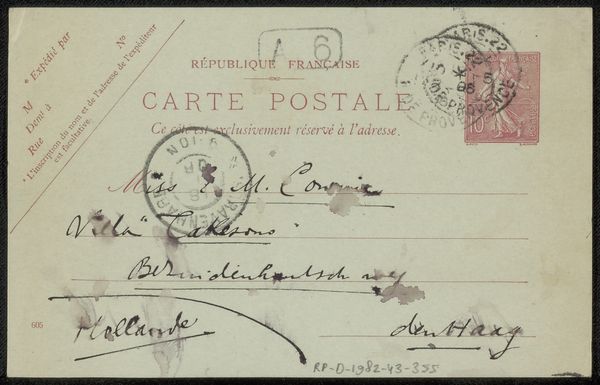 A 6
RÉPUBLIQUE FRANÇAISE
CARTE POSTALE
Ce côté est exclusivement réservé à l'adresse.
N°
* Expédié par
M
Domé à
Rue
* L'inscription du nom et de l'adresse de l'expéditeur
est facultative.
PARIS. 22
R. DE PROVENCE
10
'S GRAVENHAGE
Miss E. M.
Villa "
Bezuidenhoutsch weg
Hollande
den Haag
605
RP-D-1982-43-355